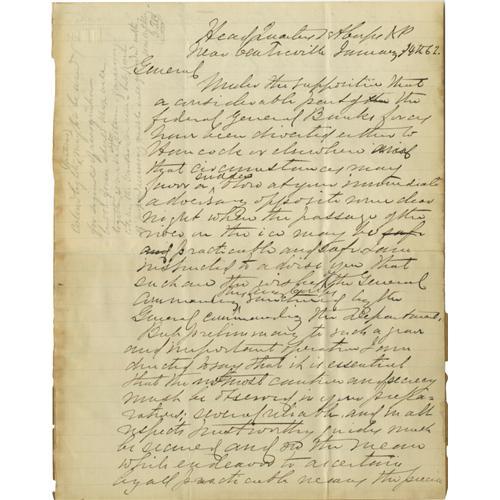 Head Quarters 1st Corps A.P.
Near Centreville January 14th 62.
General
Under the supposition that
a considerable part of the the
federal General Banks forces
have been diverted either to
Hancock or elsewhere and
that circumstances may
favor a sudden blow at your immediate
adversary opposite some clear
night when the passage of the
river on the ice may be safe
and practicable and safe I am
instructed to advise you that
such are the views of the General
Commanding this army Corps sanctioned by the
General commanding the Department.
But preliminary to such a grave
and important operation I am
directed to say that it is essential
that the utmost caution and secrecy
must be observed in your prepa-
rations; several reliable and in all
respects trustworthy guides must
be secured and in the mean
while endeavor to ascertain
by all practicable means the precise